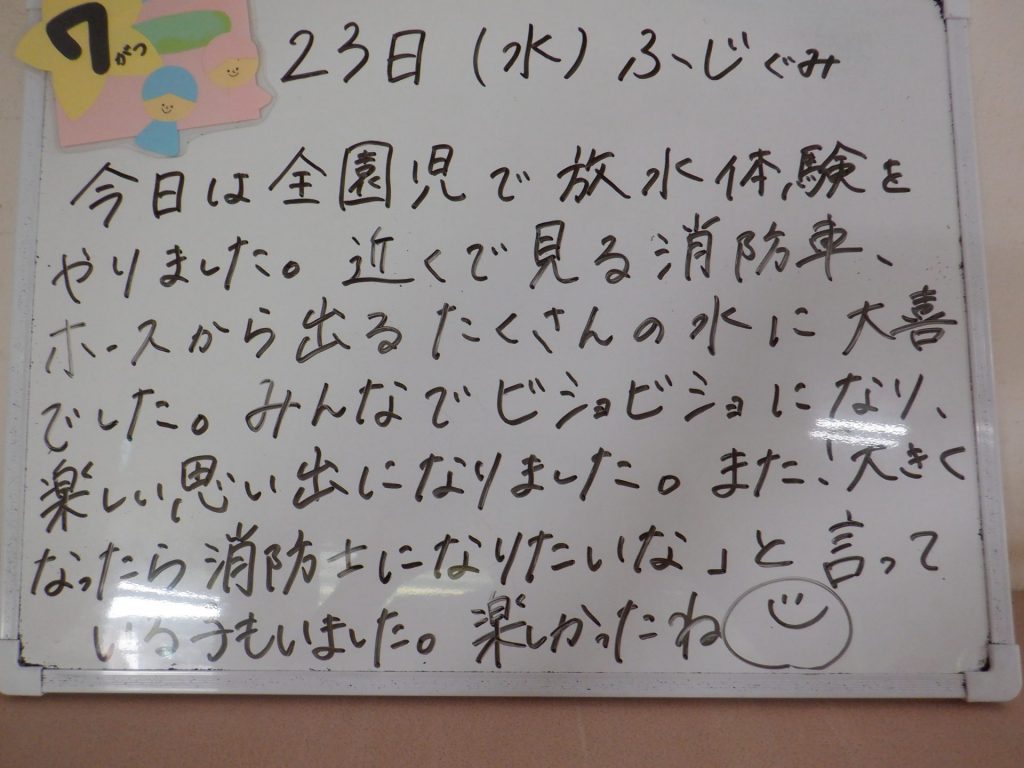 7がつ
23日(水)ふじぐみ
今日は全園児で放水体験を
やりました。近くで見る消防車、
ホースから出るたくさんの水に大喜
でした。みんなでビショビショになり、
楽しい思い出になりました。また、「大きく
なったら消防士になりたいな」と言って
いる子もいました。楽しかったね